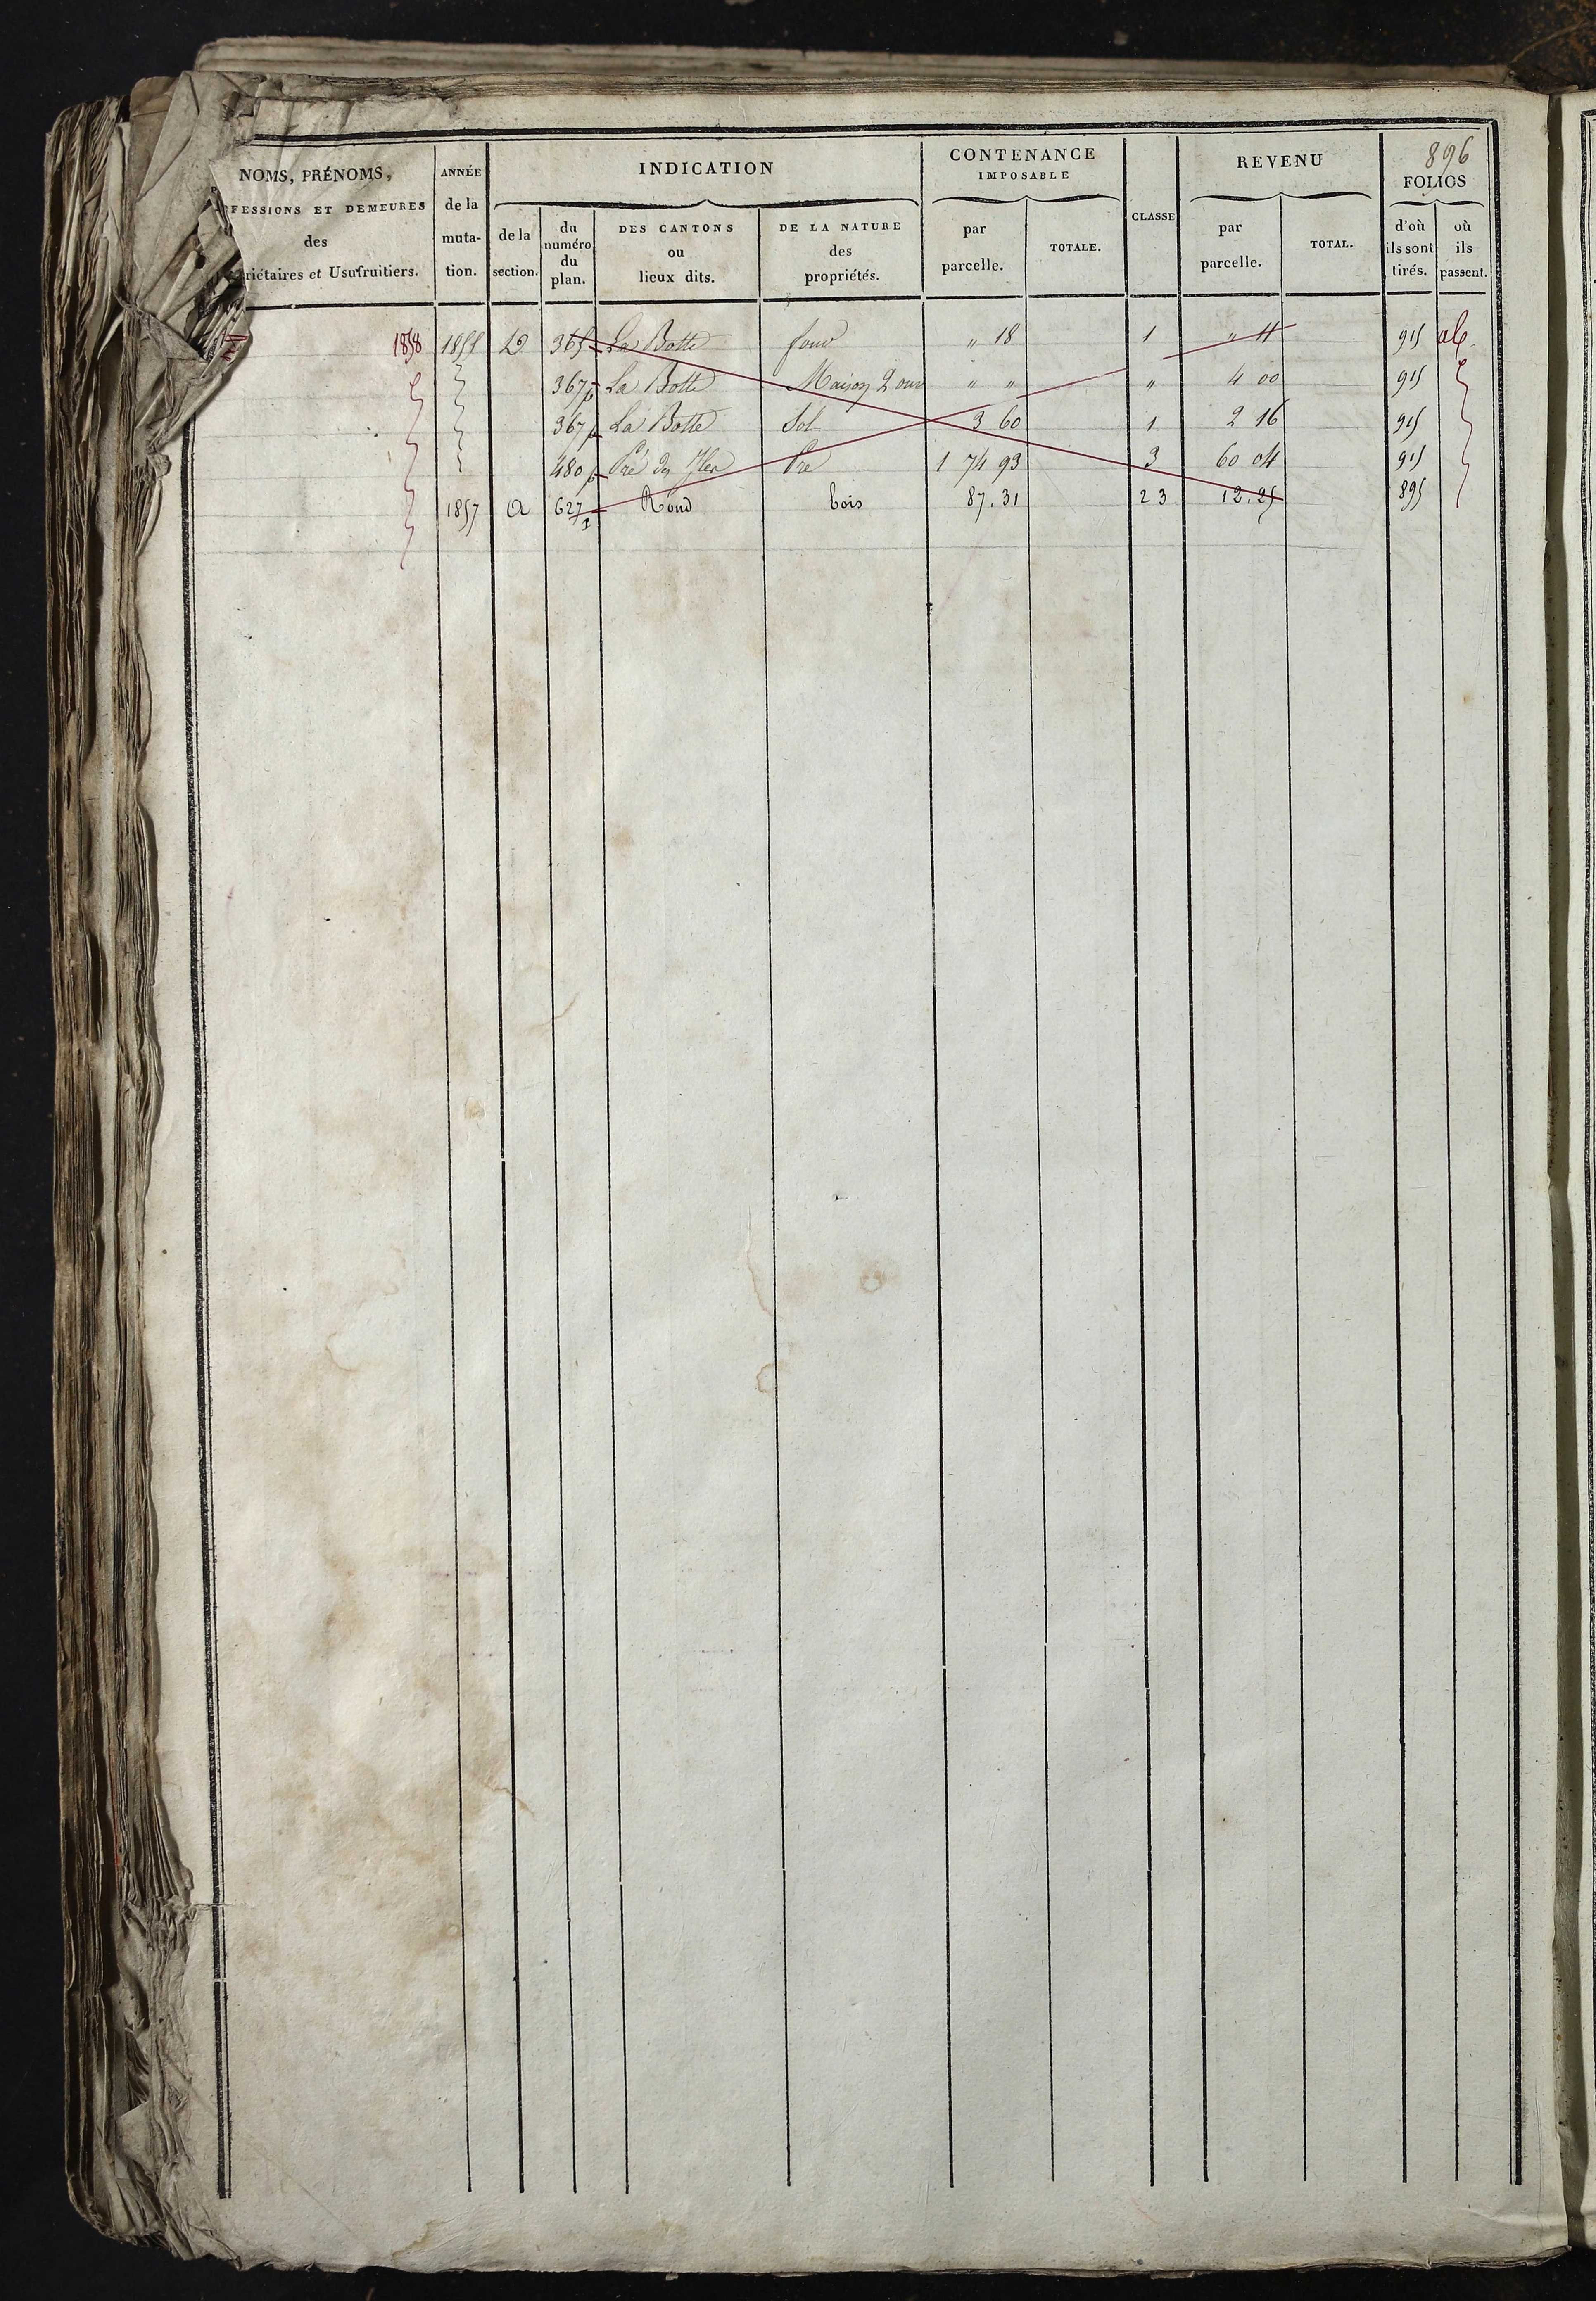 896
NOMS, PRÉNOMS,
FESSIONS ET DEMEURES
des
riétaires et Usufruitiers.
ANNÉE
de la
muta-
tion.
INDICATION
de la
section.
du
numéro
du
plan.
DES CANTONS
ou
lieux dits.
DE LA NATURE
des
propriétés.
CONTENANCE
IMPOSABLE
par
parcelle.
TOTALE.
CLASSE
REVENU
par
parcelle.
TOTAL.
FOLIOS
d'où
ils sont
tirés.
où
ils
passent.
1858 1855 D 365 La Botte fond " 18 1 " 11 915
367p La Botte Maison 2 ouv " " " 4 00 915
367p La Botte Sol 3 60 1 2 16 915
480p Pré des Pré 1 74 93 3 60 04 915
1857 a 627 Rond bois 87.31 23 12.25 895